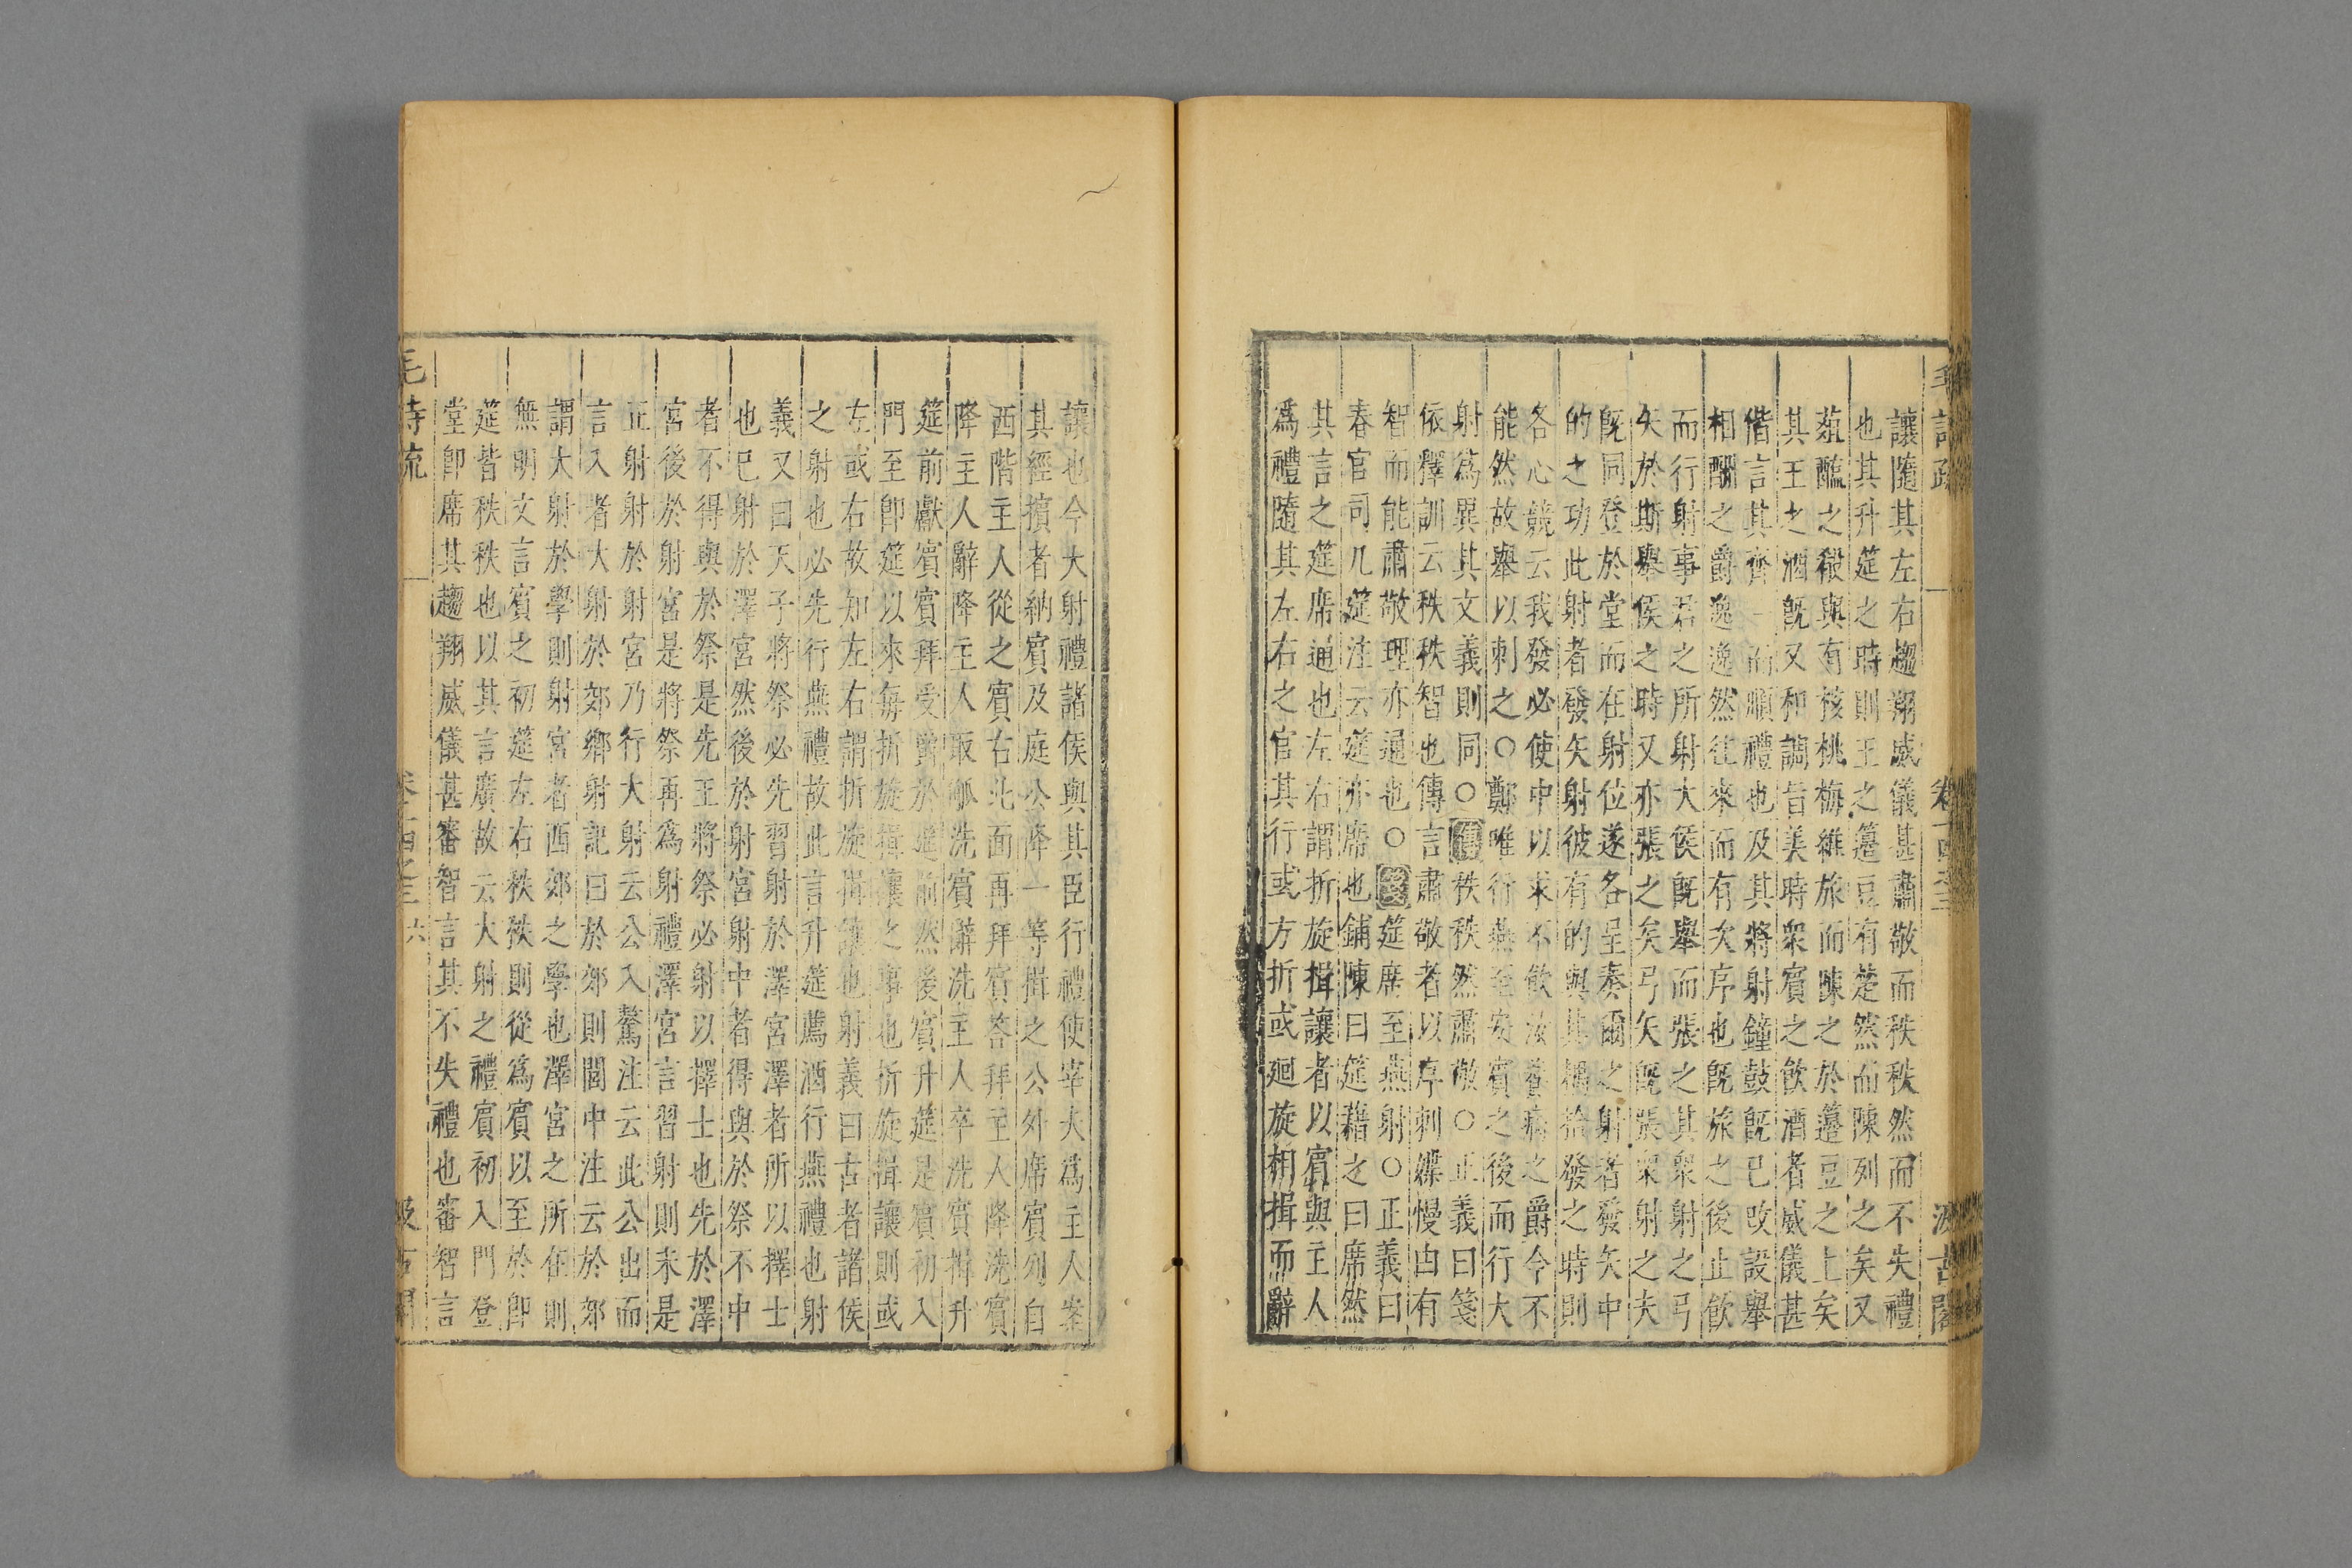 讓隨其左右趨翔威儀甚肅敬而秩秩然而不失禮
也其升筵之時則王之籩豆有楚然而陳列之矣又
菹醢之殽與有核桃梅維旅而陳之於籩豆之上矣
其王之酒旣又和調旨美時衆賓之飲酒者威儀甚
偕言其齊一而順禮也及其將射鐘鼓旣已改設舉
相酬之爵逸逸然往來而有次序也旣旅之後止飲
而行射事君之所射大侯旣舉而張之其衆射之弓
矢於斯舉侯之時又亦張之矣弓矢旣張衆射之夫
旣同登於堂而在射位遂各呈奏爾之射者發矢中
的之功此射者發矢射彼有的與其耦拾發之時則
各心競云我發必使中以求不飲汝養病之爵今不
能然故舉以刺之○鄭唯行燕至安賓之後而行大
射爲異其文義則同○傳秩秩然肅敬○正義曰箋
依釋訓云秩秩智也傳言肅敬者以序刺媟慢由有
智而能肅敬理亦通也○箋筵席至燕射○正義曰
春官司几筵注云筵亦席也鋪陳曰筵藉之曰席然
其言之筵席通也左右謂折旋揖讓者以賓與主人
爲禮隨其左右之官其行或方折或廻旋相揖而辭
讓也今大射禮諸侯與其臣行禮使宰夫爲主人案
其經擯者納賓及庭公降一等揖之公外席賓列自
西階主人從之賓右北面再拜賓荅拜主人降洗賓
降主人辭降主人取觚洗賓辭洗主人卒洗賓揖升
筵前獻賓賓拜受爵於筵前然後賓升筵是賓初入
門至卽筵以來每折旋揖讓之事也折旋揖讓則或
左或右故知左右謂折旋揖讓也射義曰古者諸侯
之射也必先行燕禮故此言升筵薦酒行燕禮也射
義又曰天子將祭必先習射於澤宮澤者所以擇士
也已射於澤宮然後於射宮射中者得與於祭不中
者不得與於祭是先王將祭必射以擇士也先於澤
宮後於射宮是將祭再爲射禮澤宮言習射則未是
正射射於射宮乃行大射云公入驁注云此公出而
言入者大射於郊鄉射記曰於郊則閭中注云於郊
謂大射於學則射宮者西郊之學也澤宮之所在則
無明文言賓之初筵左右秩秩則從爲賓以至於卽
筵皆秩秩也以其言廣故云大射之禮賓初入門登
堂卽席其趨翔威儀甚審智言其不失禮也審智言